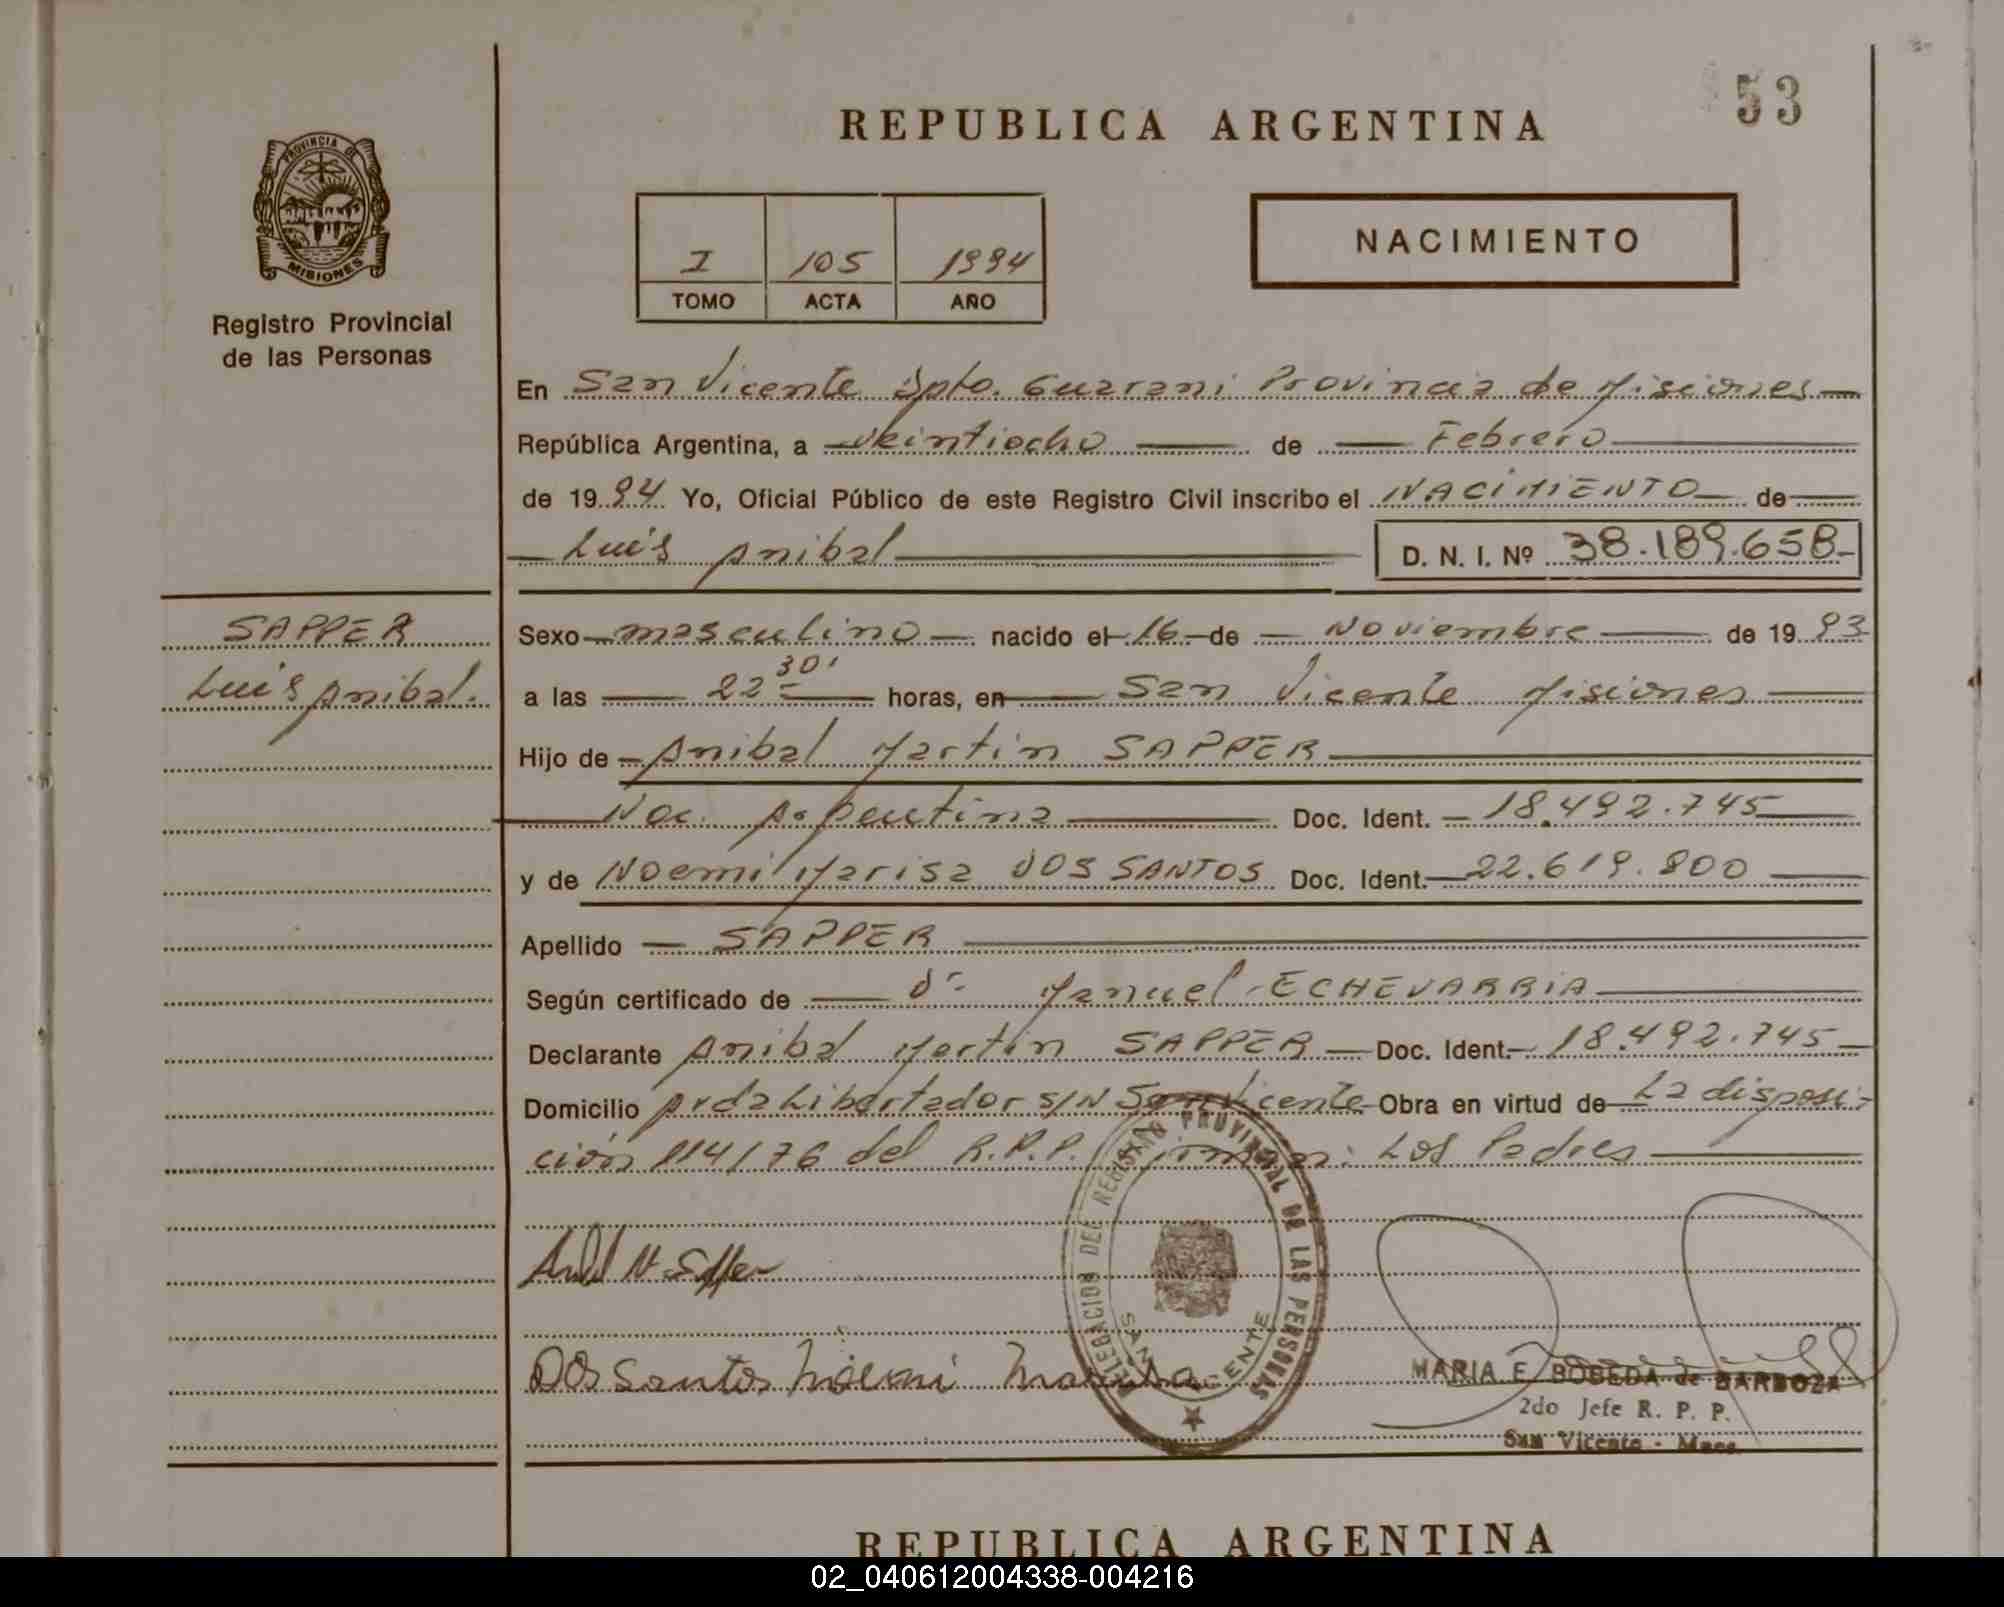 53
REPUBLICA ARGENTINA
PROVINCIA DE
MISIONES
Registro Provincial
de las Personas
I 105 1994
TOMO ACTA AÑO
NACIMIENTO
En San Vicente Dpto. Guarani Provincia de Misiones
República Argentina, a veintiocho de Febrero
de 1994 Yo, Oficial Público de este Registro Civil inscribo el NACIMIENTO de
Luis Anibal D. N. I. Nº 38.189.658
SAPPER
Luis Anibal.
Sexo masculino nacido el 16 de Noviembre de 1993
a las 22 30' horas, en San Vicente Misiones
Hijo de Anibal Martin SAPPER
Nac. Argentina Doc. Ident. 18.492.745
y de Noemi Marisa DOS SANTOS Doc. Ident. 22.619.800
Apellido SAPPER
Según certificado de Dr. Manuel ECHEVARRIA
Declarante Anibal Martin SAPPER Doc. Ident. 18.492.745
Domicilio Avda Libertador S/N San Vicente Obra en virtud de La disposi-
ción 114/76 del R.P.P. Firman: Los Padres
DELEGACION DEL REGISTRO PROVINCIAL DE LAS PERSONAS
SAN VICENTE
Dos Santos Noemi Marisa
MARIA E. BOBEDA de BARBOZA
2do Jefe R. P. P.
San Vicente - Mnes.
REPUBLICA ARGENTINA
02_040612004338-004216